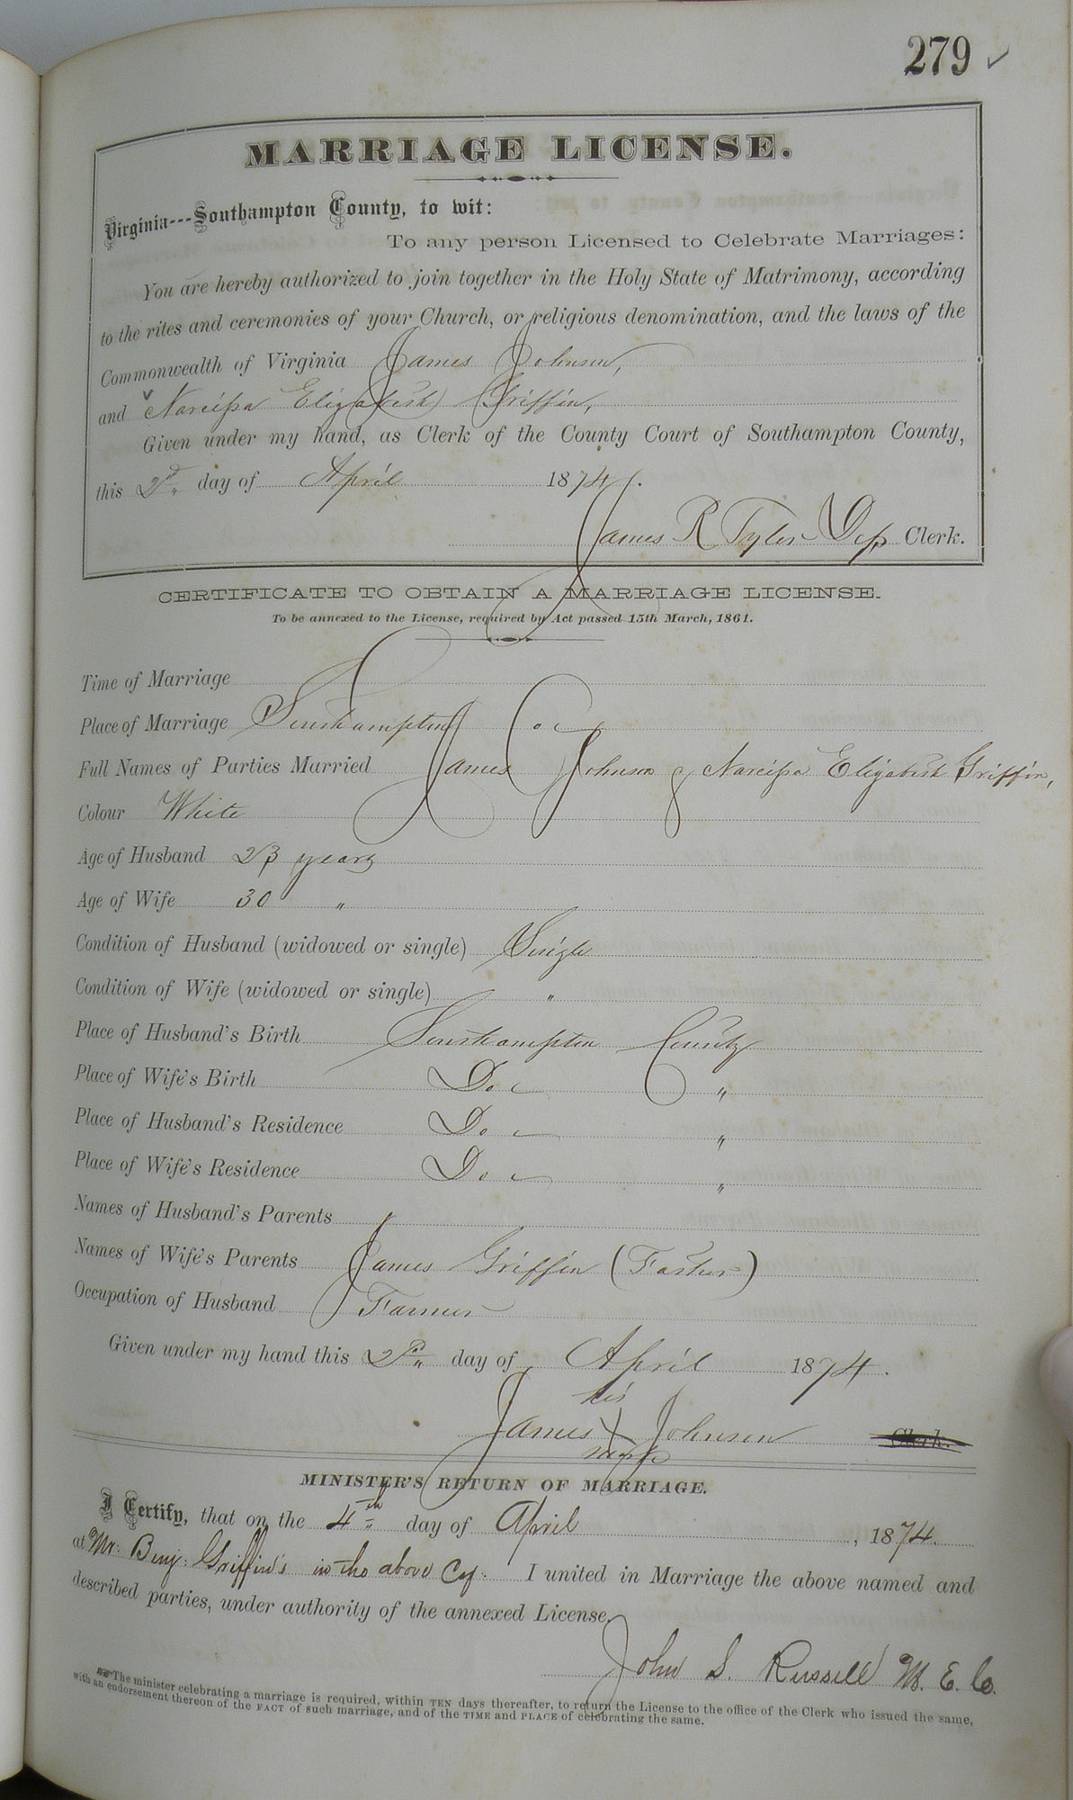 279 ✓
MARRIAGE LICENSE.
Virginia---Southampton County, to wit:
To any person Licensed to Celebrate Marriages:
You are hereby authorized to join together in the Holy State of Matrimony, according
to the rites and ceremonies of your Church, or religious denomination, and the laws of the
Commonwealth of Virginia James Johnson,
and Narcissa Elizabeth Griffin,
Given under my hand, as Clerk of the County Court of Southampton County,
this 2d day of April 1874.
James R Tyler Dep Clerk.
CERTIFICATE TO OBTAIN A MARRIAGE LICENSE.
To be annexed to the License, required by Act passed 15th March, 1861.
Time of Marriage
Place of Marriage Southampton Co
Full Names of Parties Married James Johnson & Narcissa Elizabeth Griffin,
Colour White
Age of Husband 23 years
Age of Wife 30 "
Condition of Husband (widowed or single) Single
Condition of Wife (widowed or single) "
Place of Husband's Birth Southampton County
Place of Wife's Birth Do "
Place of Husband's Residence Do "
Place of Wife's Residence Do "
Names of Husband's Parents
Names of Wife's Parents James Griffin (Father)
Occupation of Husband Farmer
Given under my hand this 2d day of April 1874.
his
James X Johnson Clerk.
mark
MINISTER'S RETURN OF MARRIAGE.
I Certify, that on the 4th day of April, 1874.
at Mr. Benj. Griffin's in the above Cy. I united in Marriage the above named and
described parties, under authority of the annexed License.
John S. Russell M. E. C.
The minister celebrating a marriage is required, within TEN days thereafter, to return the License to the office of the Clerk who issued the same,
with an endorsement thereon of the FACT of such marriage, and of the TIME and PLACE of celebrating the same.